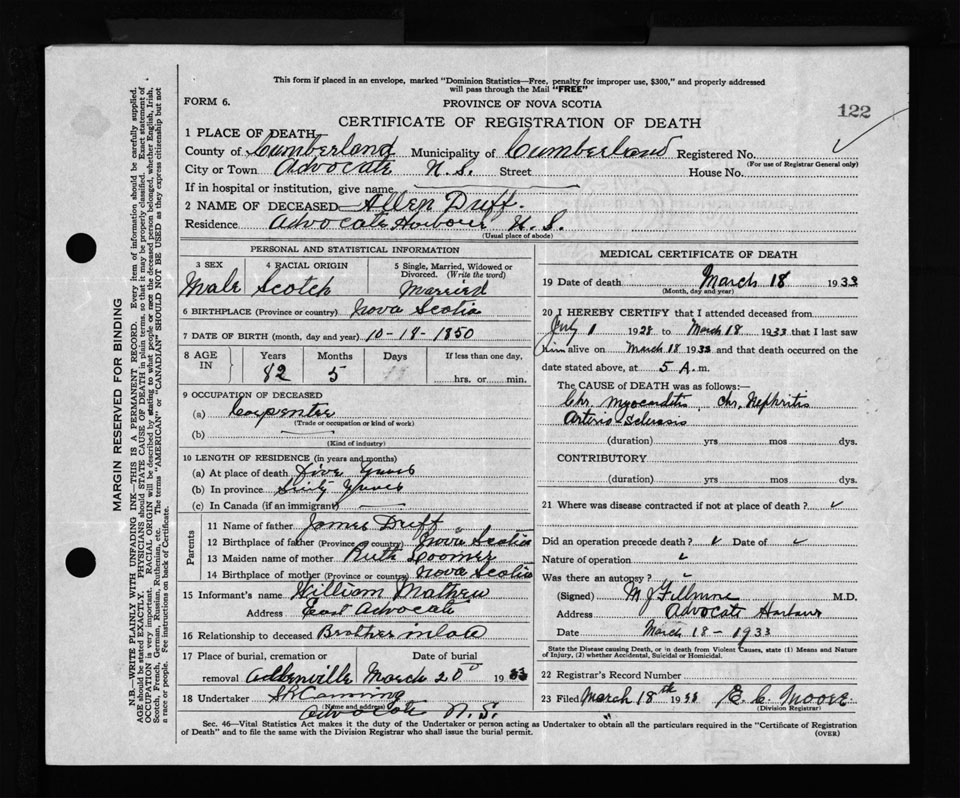 This form if placed in an envelope, marked "Dominion Statistics—Free, penalty for improper use, $300," and properly addressed
will pass through the Mail "FREE"
FORM 6.
PROVINCE OF NOVA SCOTIA
122
CERTIFICATE OF REGISTRATION OF DEATH
1 PLACE OF DEATH
County of Cumberland Municipality of Cumberland Registered No.
(For use of Registrar General only)
City or Town Advocate N.S. Street House No.
If in hospital or institution, give name
2 NAME OF DECEASED Allen Duff.
Residence Advocate Harbour N.S.
(Usual place of abode)
PERSONAL AND STATISTICAL INFORMATION
3 SEX 4 RACIAL ORIGIN 5 Single, Married, Widowed or
Divorced. (Write the word)
Male Scotch Married
6 BIRTHPLACE (Province or country) Nova Scotia
7 DATE OF BIRTH (month, day and year) 10-18-1850
8 AGE IN Years Months Days If less than one day,
82 5 hrs. or min.
9 OCCUPATION OF DECEASED
(a) Carpenter
(Trade or occupation or kind of work)
(b)
(Kind of industry)
10 LENGTH OF RESIDENCE (in years and months)
(a) At place of death Five Years
(b) In province Years
(c) In Canada (if an immigrant)
Parents
11 Name of father James Duff
12 Birthplace of father (Province or country) Nova Scotia
13 Maiden name of mother Ruth Coomer
14 Birthplace of mother (Province or country) Nova Scotia
15 Informant's name William Mathew
Address East Advocate
16 Relationship to deceased Brother inlaw
17 Place of burial, cremation or Date of burial
removal March 20 1933
18 Undertaker
(Name and address)
Advocate N.S.
MEDICAL CERTIFICATE OF DEATH
19 Date of death March 18 1933
(Month, day and year)
20 I HEREBY CERTIFY that I attended deceased from
July 1 1928 to March 18 1933 that I last saw
him alive on March 18 1933 and that death occurred on the
date stated above, at 5 A.m.
The CAUSE OF DEATH was as follows:—
Chr. Myocarditis Chr. Nephritis
Arterio-Sclerosis
(duration) yrs mos dys.
CONTRIBUTORY
(duration) yrs mos dys.
21 Where was disease contracted if not at place of death?
Did an operation precede death? Date of
Nature of operation
Was there an autopsy?
(Signed) M J Fillmore M.D.
Address Advocate Harbour
Date March 18-1933
State the Disease causing Death, or in death from Violent Causes, state (1) Means and Nature
of Injury, (2) whether Accidental, Suicidal or Homicidal.
22 Registrar's Record Number
23 Filed March 18th 1933 E. C. Moore
(Division Registrar)
Sec. 46—Vital Statistics Act makes it the duty of the Undertaker or person acting as Undertaker to obtain all the particulars required in the "Certificate of Registration
of Death" and to file the same with the Division Registrar who shall issue the burial permit.
(OVER)
MARGIN RESERVED FOR BINDING
N.B.—WRITE PLAINLY WITH UNFADING INK—THIS IS A PERMANENT RECORD. Every item of information should be carefully supplied.
AGE should be stated EXACTLY. PHYSICIANS should STATE CAUSE OF DEATH in plain terms, so that it may be properly classified. Exact statement of
OCCUPATION is very important. RACIAL ORIGIN will be described by stating to what people or race the deceased person belonged, whether English, Irish,
Scotch, French, German, Russian, Ruthenian, etc. The terms "AMERICAN" or "CANADIAN" SHOULD NOT BE USED as they express citizenship but not
a race or people. Fee instructions on back of Certificate.